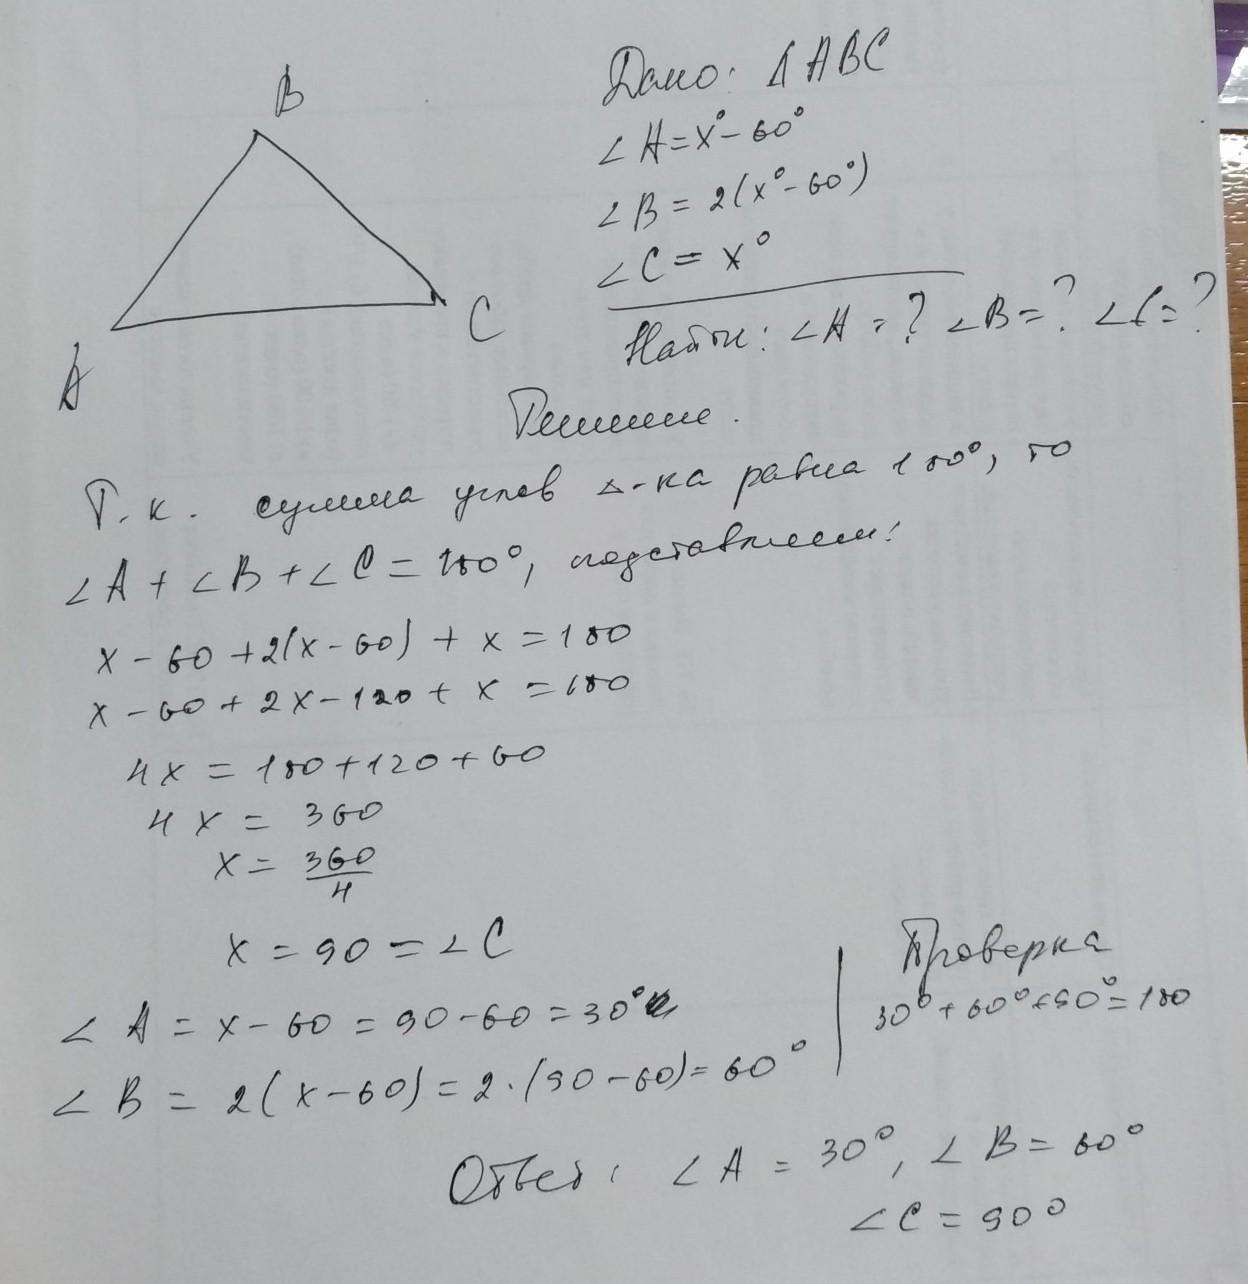 B
A
C
Дано: ΔABC
∠A = x° - 60°
∠B = 2(x° - 60°)
∠C = x°
Найти: ∠A = ? ∠B = ? ∠C = ?
Решение.
Т.к. сумма углов Δ-ка равна 180°, то
∠A + ∠B + ∠C = 180°, подставляем:
x - 60 + 2(x - 60) + x = 180
x - 60 + 2x - 120 + x = 180
4x = 180 + 120 + 60
4x = 360
x = 360/4
x = 90 = ∠C
∠A = x - 60 = 90 - 60 = 30°
∠B = 2(x - 60) = 2·(90 - 60) = 60°
Проверка
30° + 60° + 90° = 180
Ответ: ∠A = 30°, ∠B = 60°
∠C = 90°